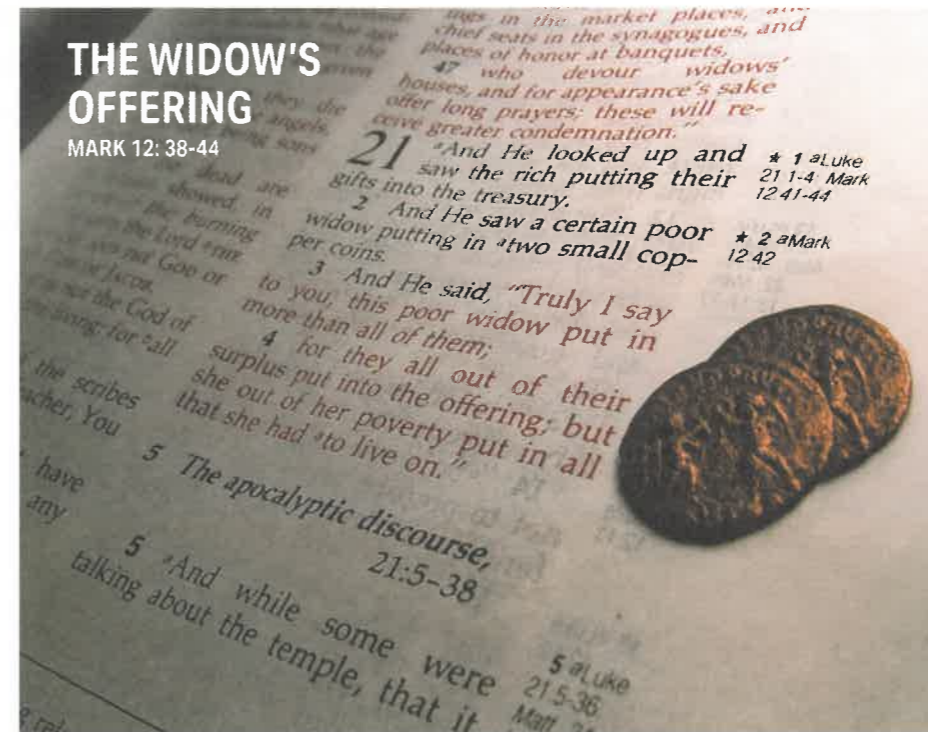 THE WIDOW'S
OFFERING
MARK 12: 38-44
ings in the market places, and
chief seats in the synagogues, and
places of honor at banquets,
47 who devour widows'
houses, and for appearance's sake
offer long prayers; these will re-
ceive greater condemnation."
21 aAnd He looked up and
saw the rich putting their
gifts into the treasury.
2 And He saw a certain poor
widow putting in atwo small cop-
per coins.
3 And He said, "Truly I say
to you, this poor widow put in
more than all of them;
4 for they all out of their
surplus put into the offering; but
she out of her poverty put in all
that she had ato live on."
5 The apocalyptic discourse,
21:5–38
5 aAnd while some were
talking about the temple, that it
★ 1 aLuke
21 1-4 Mark
12 41-44
★ 2 aMark
12 42
5 aLuke
21.5-36
they die
angels,
sons
dead are
showed, in
the burning
the Lord
not GOD or
not the God of
for all
the scribes
You
have
any